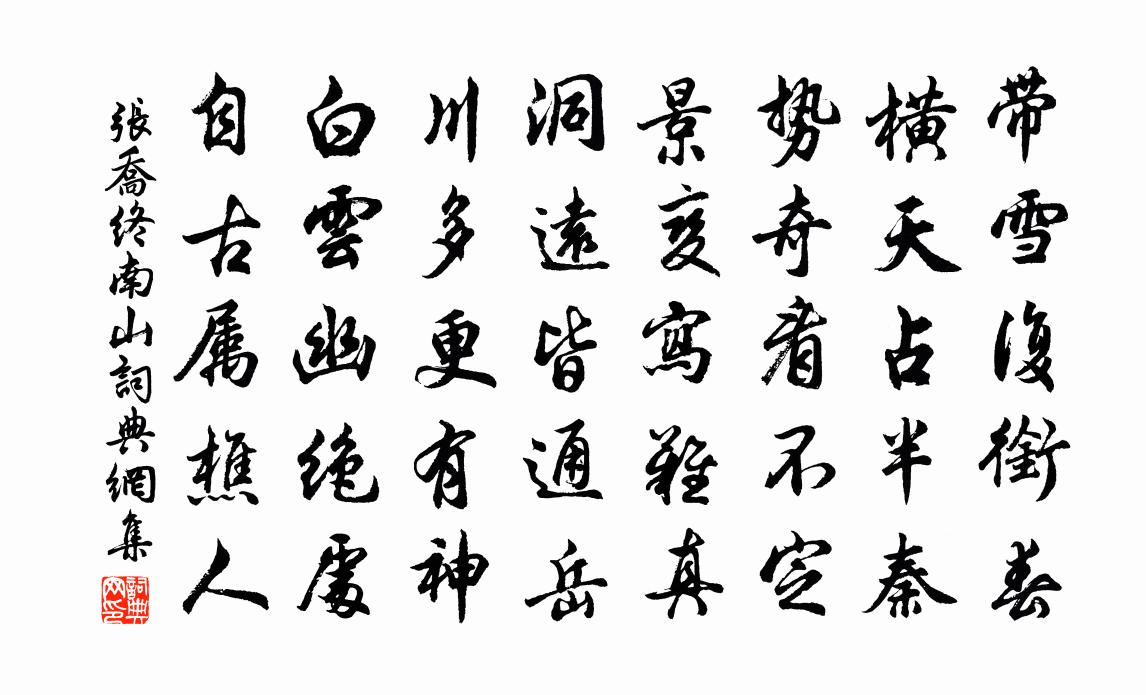 带雪復銜春
橫天占半秦
勢奇看不定
景變寫難真
洞遠皆通岳
川多更有神
白雲幽絕處
自古属樵人
張喬終南山詞典網集
詞典网印